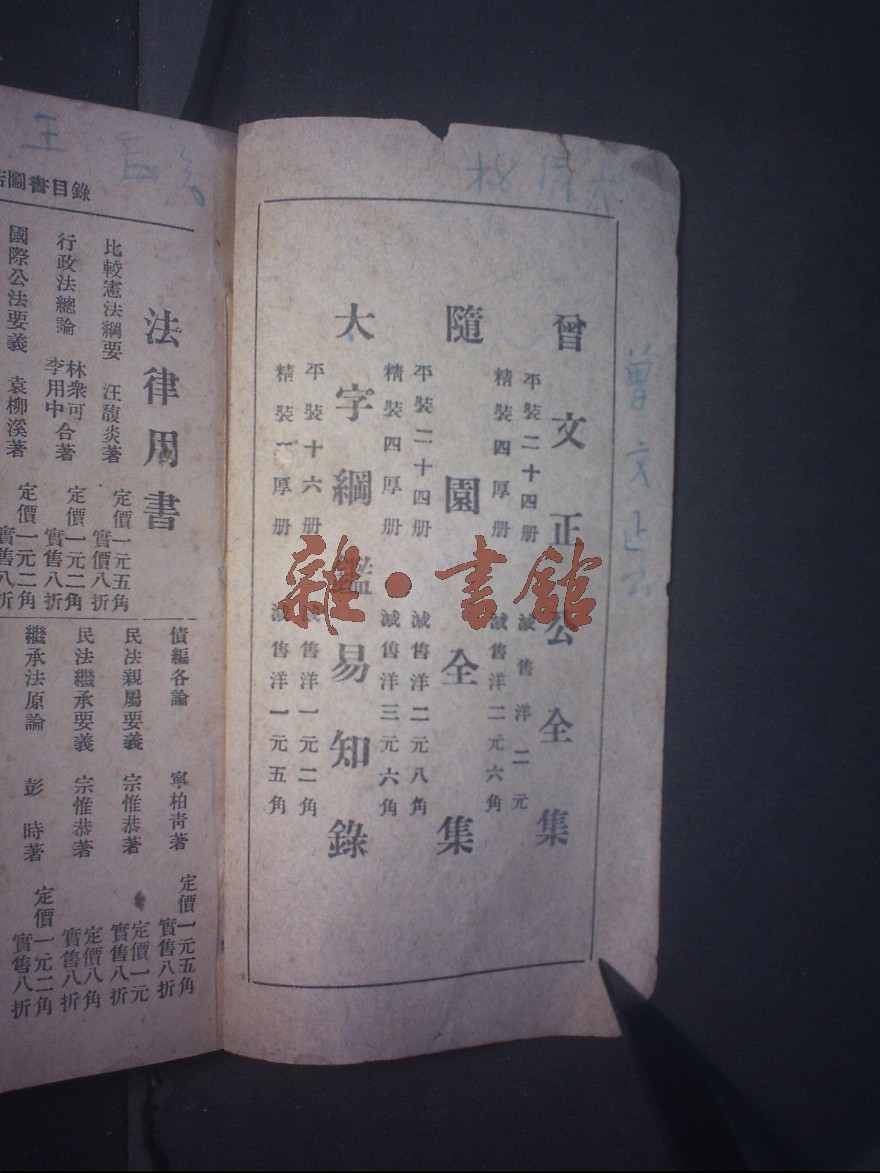 曾文正公全集
平裝二十四册 減售洋二元
精裝四厚册 減售洋二元六角
隨園全集
平裝二十四册 減售洋二元八角
精裝四厚册 減售洋三元六角
大字綱鑑易知錄
平裝十六册 減售洋一元二角
精裝一厚册 減售洋一元五角
曾文正公
雜·書館
圖書目錄
法律用書
比較憲法綱要 汪馥炎著 定價一元五角 實價八折
行政法總論 林衆可 李用中 合著 定價一元二角 實售八折
國際公法要義 袁柳溪著 定價一元二角 實售八折
債編各論 寧柏青著 定價一元五角 實售八折
民法親屬要義 宗惟恭著 定價一元 實售八折
民法繼承要義 宗惟恭著 定價八角 實售八折
繼承法原論 彭時著 定價一元二角 實售八折
王